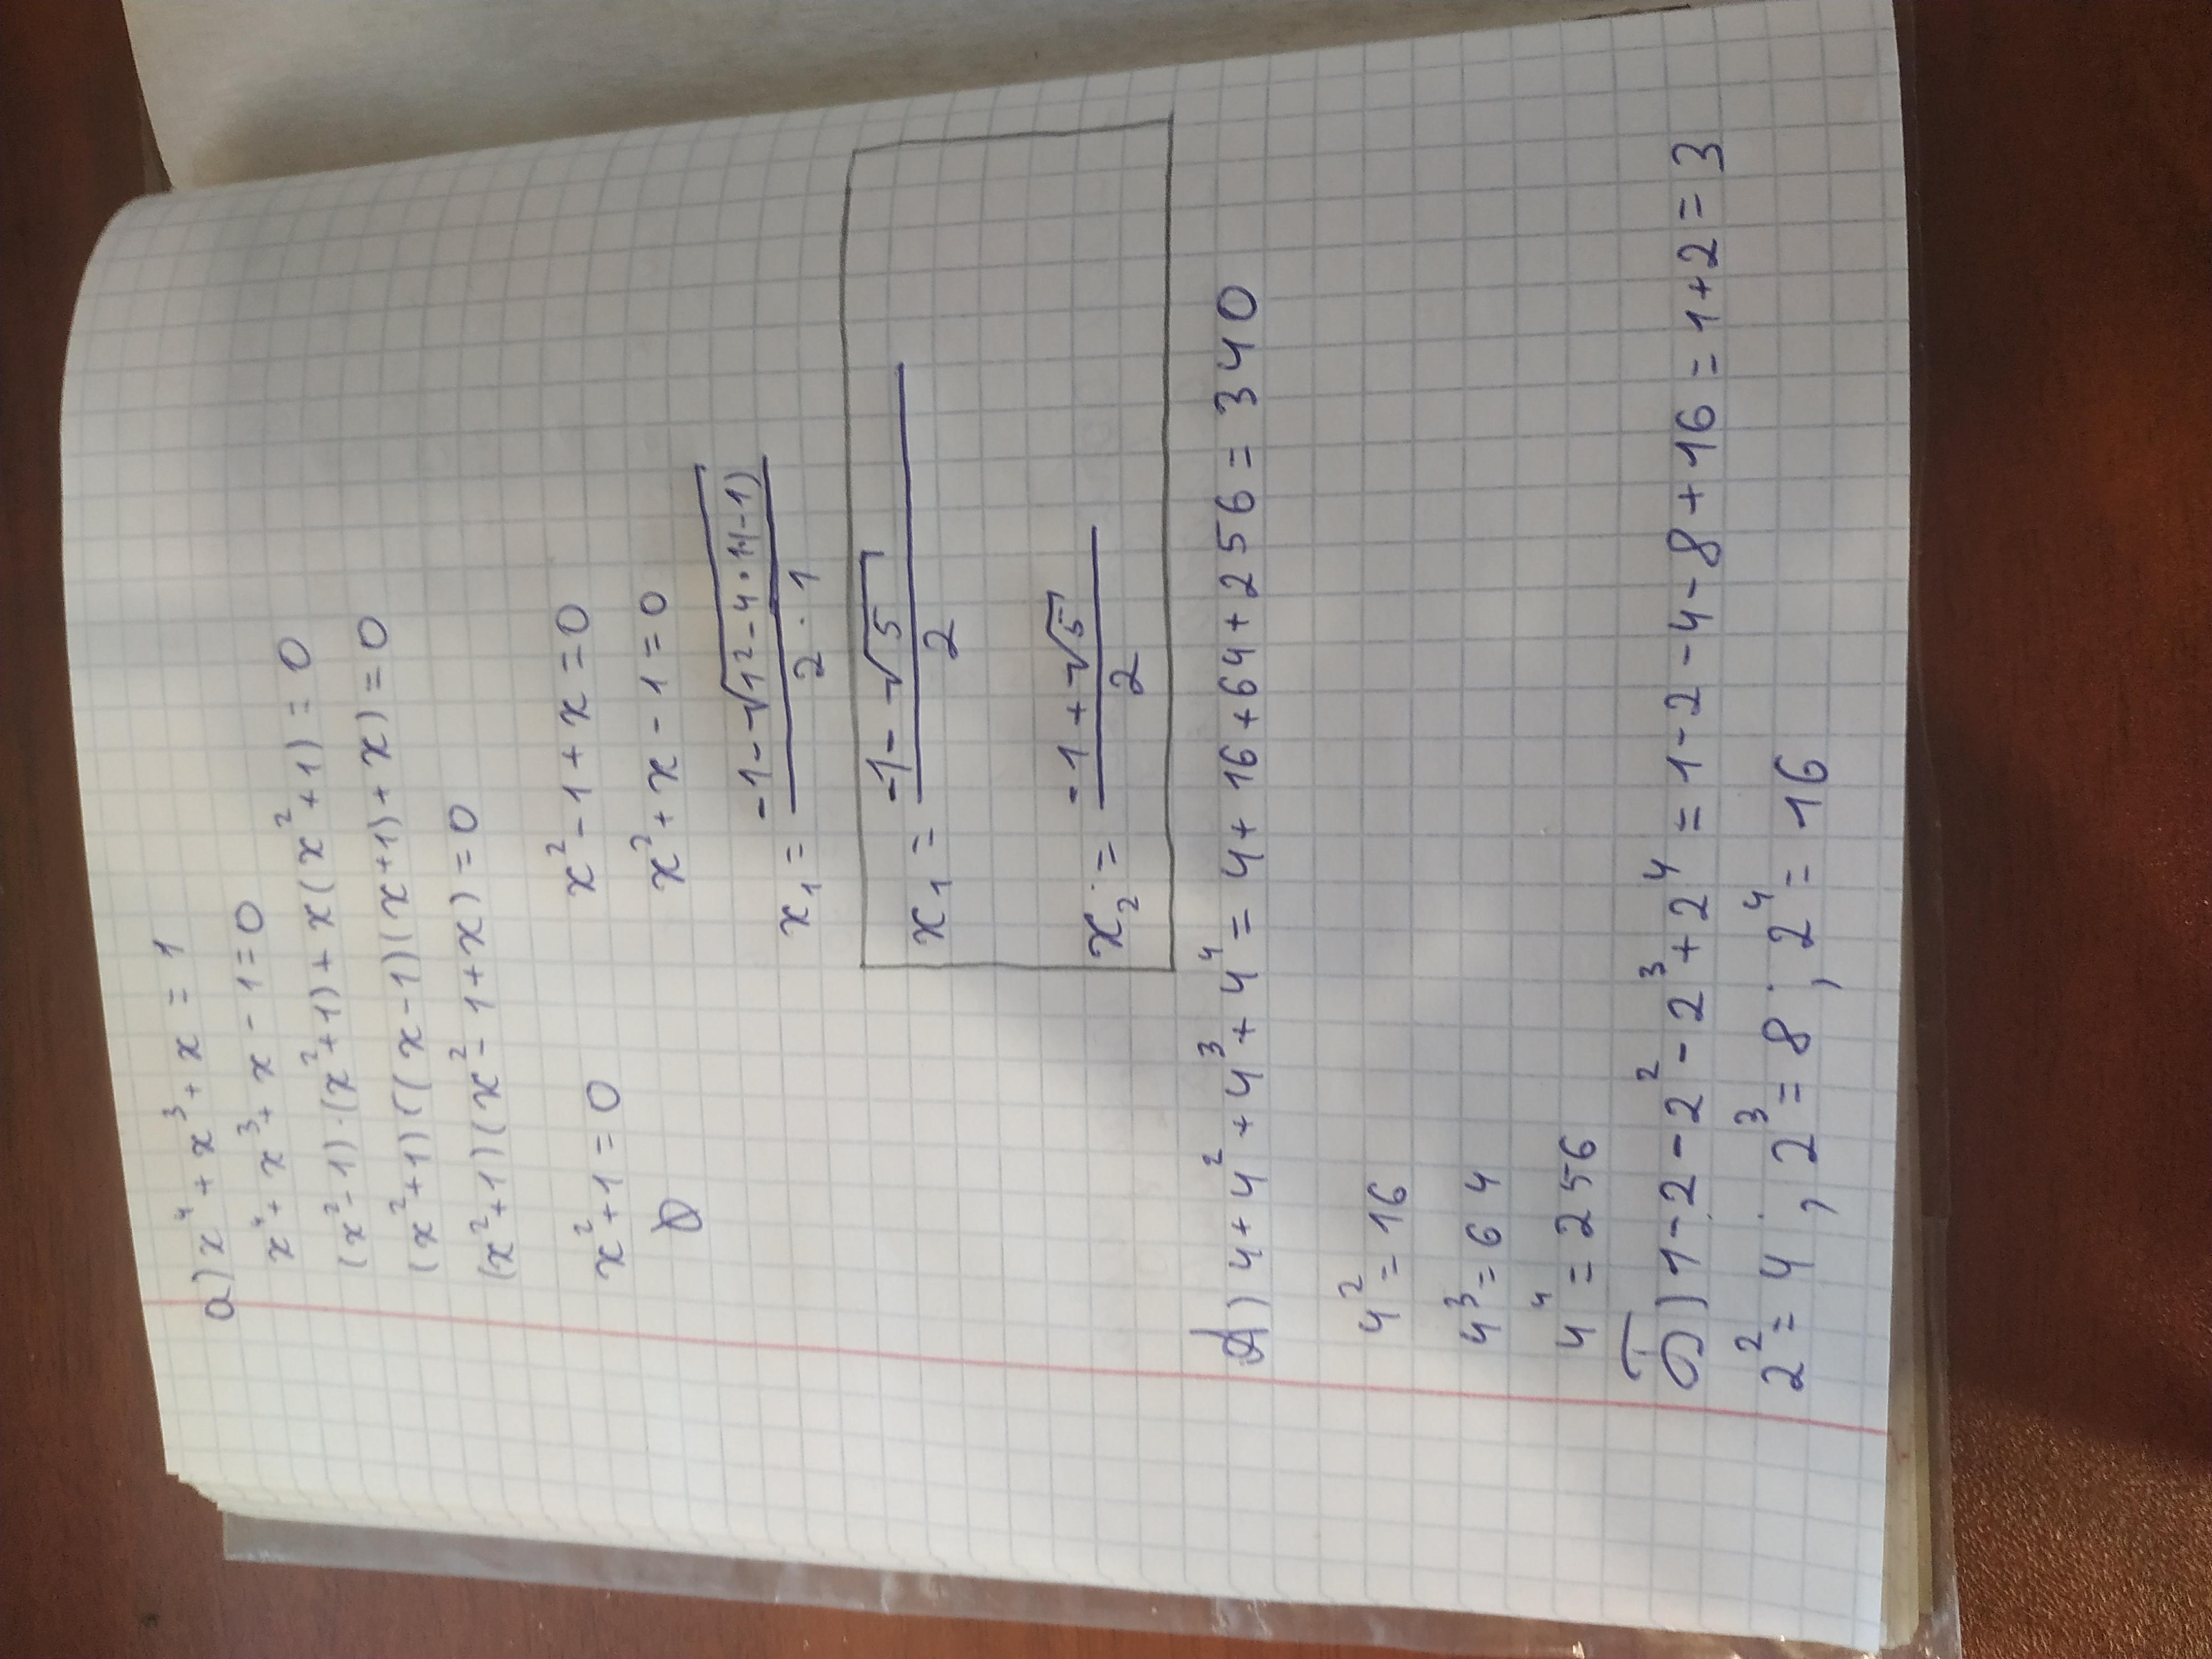 а) x⁴ + x³ + x = 1
x⁴ + x³ + x - 1 = 0
(x² - 1) · (x² + 1) + x (x² + 1) = 0
(x² + 1) ((x - 1)(x + 1) + x) = 0
(x² + 1) (x² - 1 + x) = 0
x² + 1 = 0 x² - 1 + x = 0
∅ x² + x - 1 = 0
x₁ = (-1 - √(1² - 4 · 1(-1))) / (2 · 1)
x₁ = (-1 - √5) / 2
x₂ = (-1 + √5) / 2
а) 4 + 4² + 4³ + 4⁴ = 4 + 16 + 64 + 256 = 340
4² = 16
4³ = 64
4⁴ = 256
б) 1 - 2 - 2² - 2³ + 2⁴ = 1 - 2 - 4 - 8 + 16 = 1 + 2 = 3
2² = 4 ; 2³ = 8 ; 2⁴ = 16